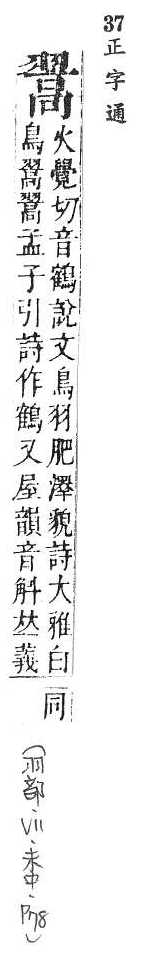 37正字通
翯
火覺切音鶴說文鳥羽肥澤貌詩大雅白
鳥翯翯孟子引詩作鶴又屋韻音斛𠀤義
同
(羽部·VII·未中·P78)